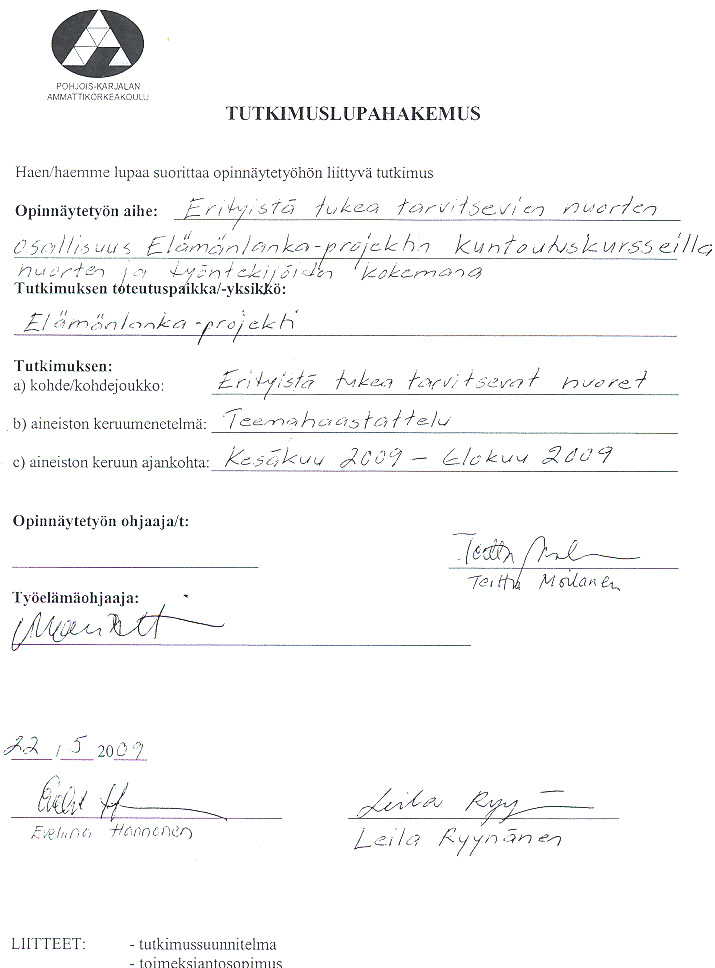 POHJOIS-KARJALAN
AMMATTIKORKEAKOULU
TUTKIMUSLUPAHAKEMUS
Haen/haemme lupaa suorittaa opinnäytetyöhön liittyvä tutkimus
Opinnäytetyön aihe: Erityistä tukea tarvitsevien nuorten
osallisuus Elämänlanka-projektin kuntoutuskursseilla
nuorten ja työntekijöiden kokemana
Tutkimuksen toteutuspaikka/-yksikkö:
Elämänlanka-projekti
Tutkimuksen:
a) kohde/kohdejoukko: Erityistä tukea tarvitsevat nuoret
b) aineiston keruumenetelmä: Teemahaastattelu
c) aineiston keruun ajankohta: Kesäkuu 2009 – Elokuu 2009
Opinnäytetyön ohjaaja/t:
Teittu Moilanen
Työelämäohjaaja:
22 / 5 2009
Leila Ryy
Eveliina Hannonen
Leila Ryynänen
LIITTEET: - tutkimussuunnitelma
- toimeksiantosopimus